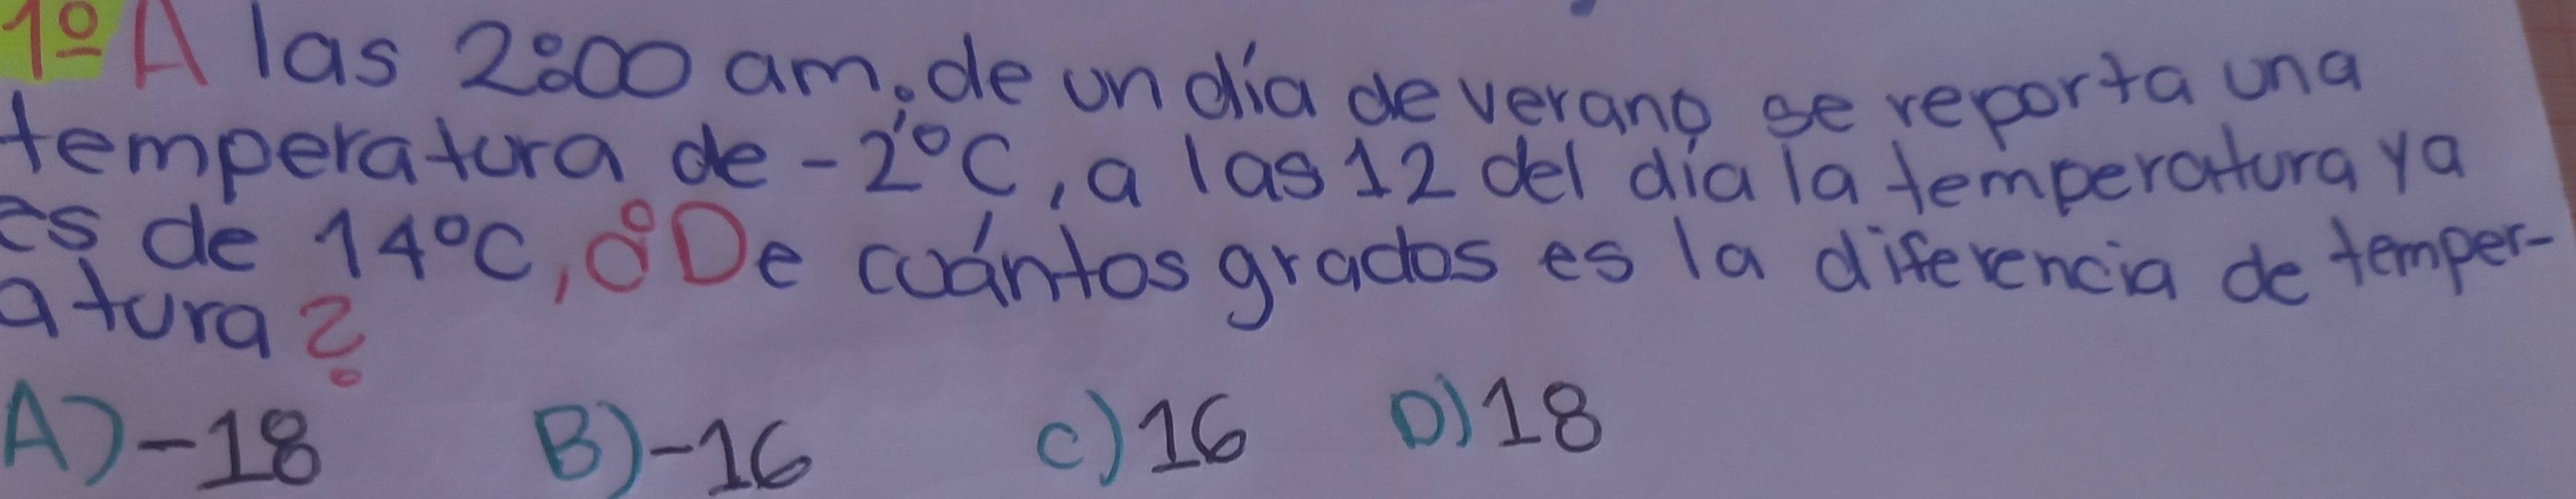 1º A las 2:00 am. de un día de verano se reporta una
temperatura de -2°C, a las 12 del día la temperatura ya
es de 14°C, ¿De cuántos grados es la diferencia de temper-
atura?
A) -18 B) -16 C) 16 D) 18